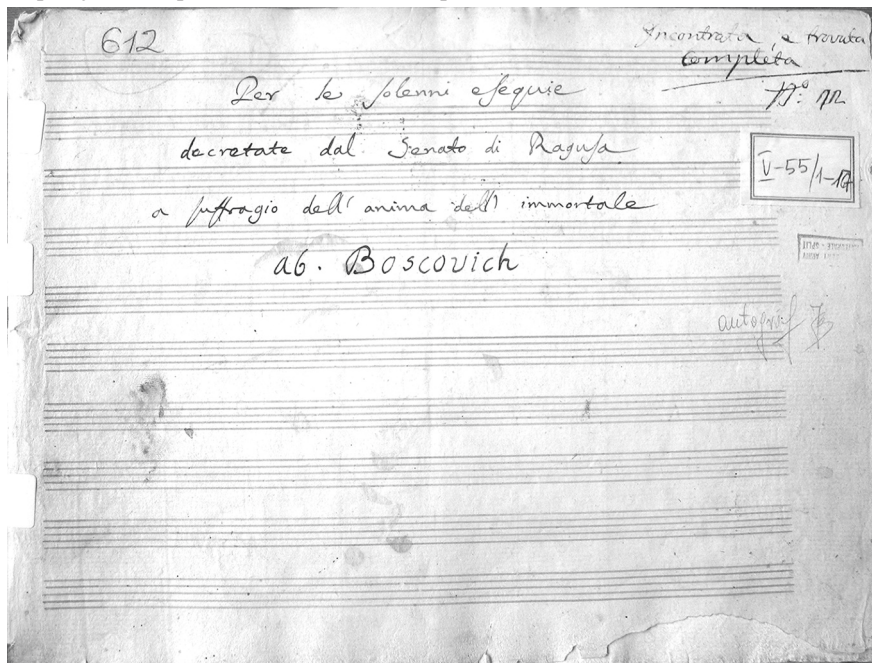 612
Incontrata e trovata
Completa
N.º 12
Per le solenni esequie
decretate dal Senato di Ragusa
V-55/1-17
a suffragio dell' anima dell' immortale
SPLIT
ab. Boscovich
autograf